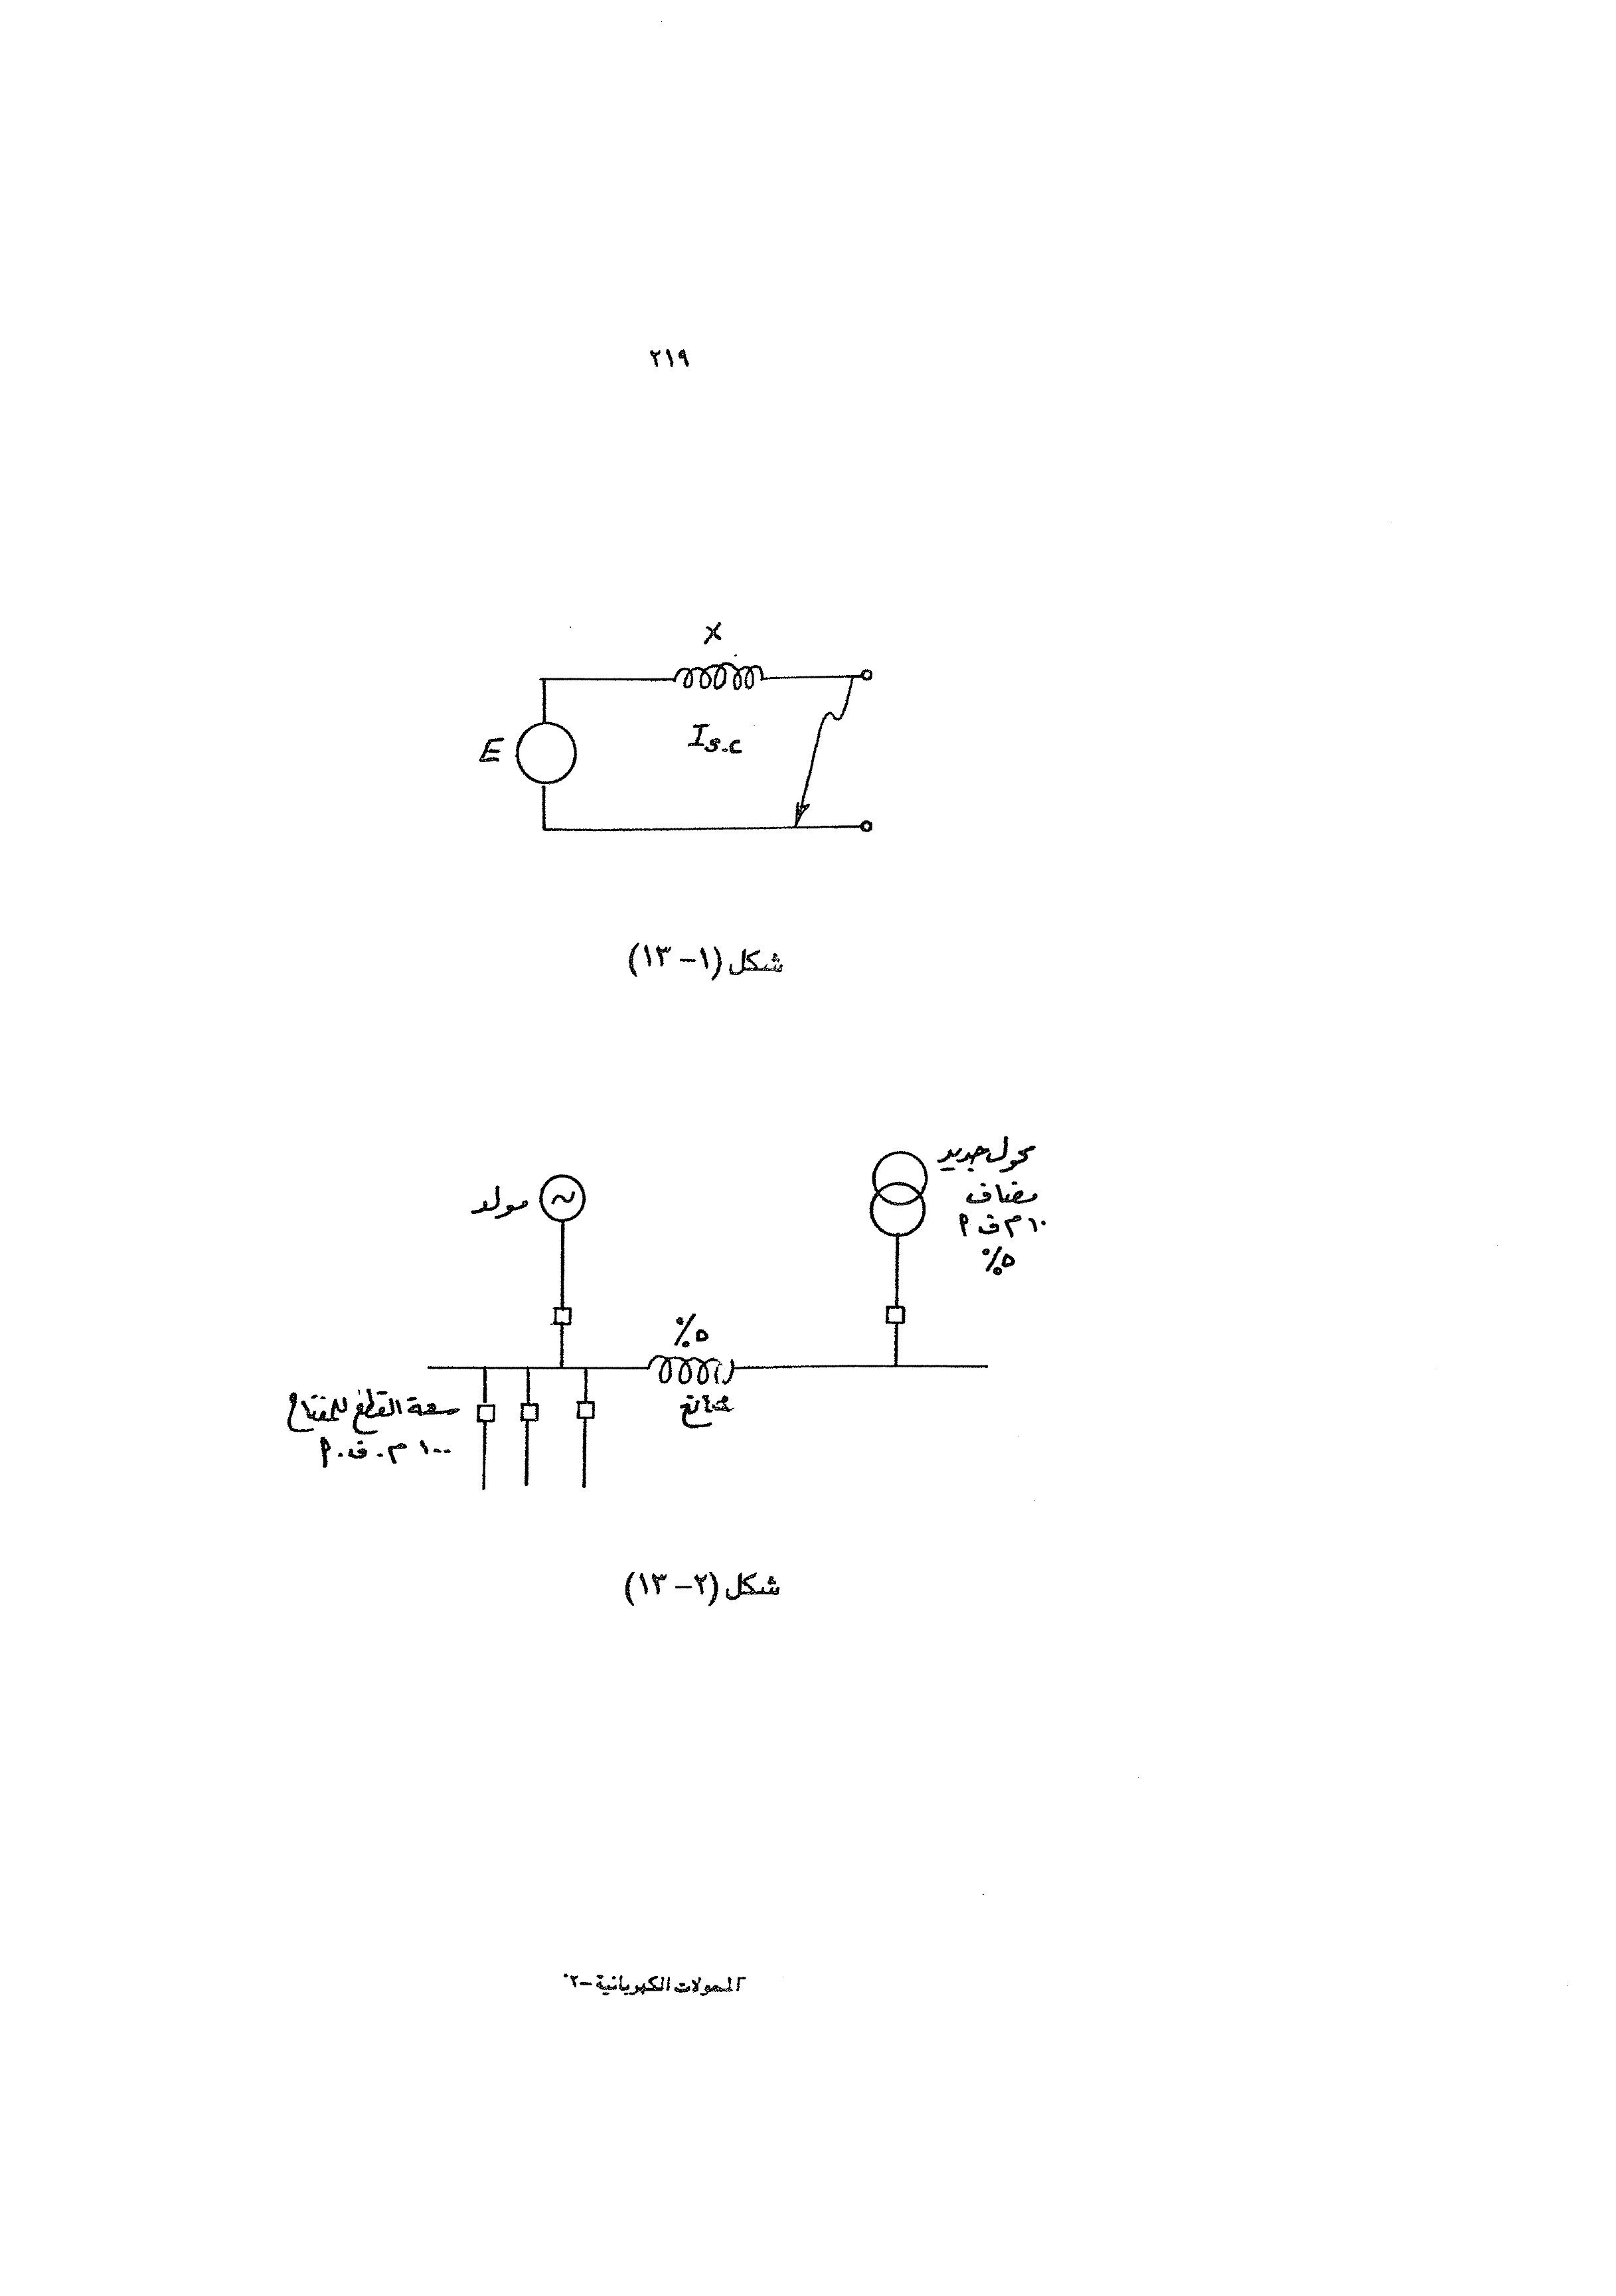 ٢١٩
X
E
Is.c
شكل (١-١٣)
مولد
محول جديد
مضاف
١٠ م ف أ
٥٪
٥٪
ممانع
سعة القطع للمفتاح
١٠٠ م.ف.أ
شكل (٢-١٣)
المحولات الكهربائية-٢٠